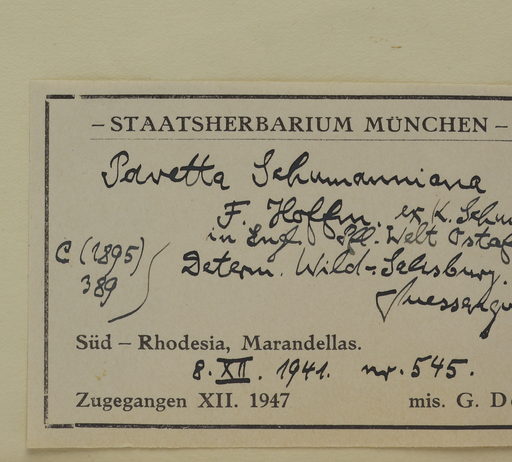 – STAATSHERBARIUM MÜNCHEN –
Pavetta Schumanniana
F. Hoffm. ex K. Schu
in Engl. Pfl. Welt Ostaf
C (1895) 389
Determ. Wild-Salisbury.
Süd – Rhodesia, Marandellas.
8. XII. 1941. nr. 545.
Zugegangen XII. 1947 mis. G. De